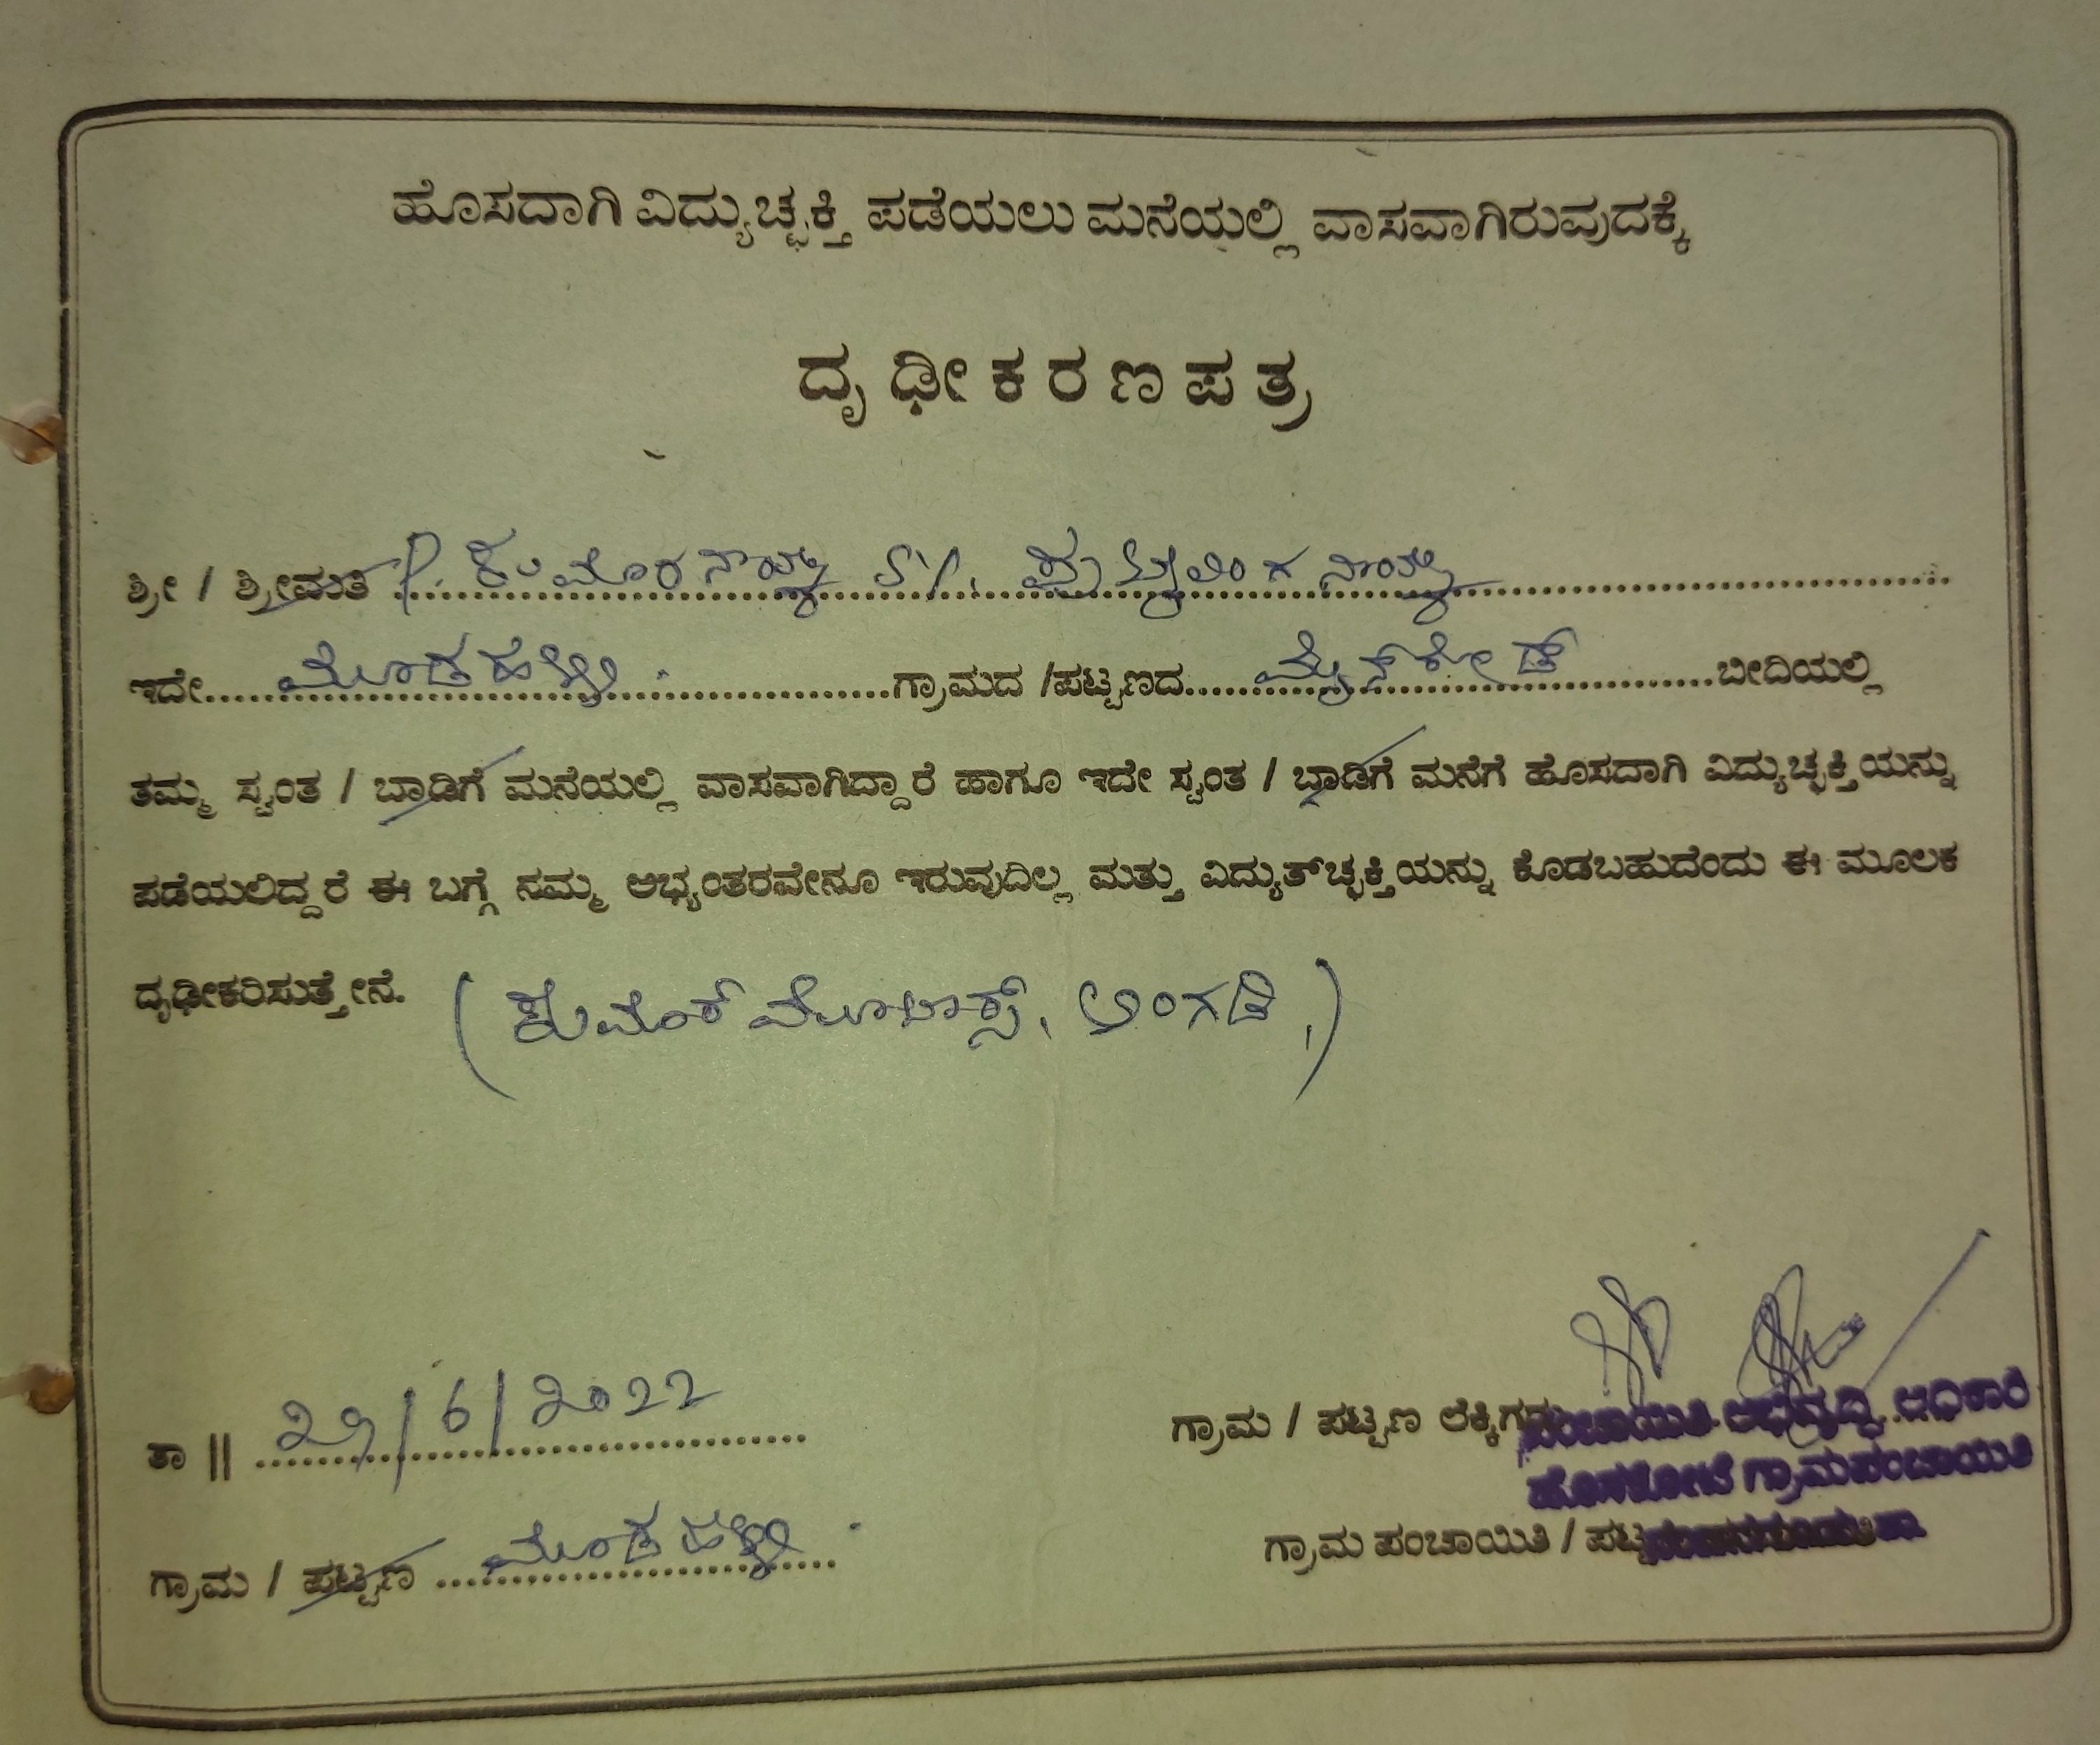 ಹೊಸದಾಗಿ ವಿದ್ಯುಚ್ಛಕ್ತಿ ಪಡೆಯಲು ಮನೆಯಲ್ಲಿ ವಾಸವಾಗಿರುವುದಕ್ಕೆ
ದೃಢೀಕರಣಪತ್ರ
ಶ್ರೀ / ಶ್ರೀಮತಿ P. ಕುಮಾರನಾಯ್ಕ S/.
ಇದೇ ಮೂಡಹಳ್ಳಿ. ಗ್ರಾಮದ /ಪಟ್ಟಣದ ಮೈನ್‌ರೋಡ್ ಬೀದಿಯಲ್ಲಿ
ತಮ್ಮ ಸ್ವಂತ / ಬಾಡಿಗೆ ಮನೆಯಲ್ಲಿ ವಾಸವಾಗಿದ್ದಾರೆ ಹಾಗೂ ಇದೇ ಸ್ವಂತ / ಬಾಡಿಗೆ ಮನೆಗೆ ಹೊಸದಾಗಿ ವಿದ್ಯುಚ್ಛಕ್ತಿಯನ್ನು
ಪಡೆಯಲಿದ್ದರೆ ಈ ಬಗ್ಗೆ ನಮ್ಮ ಅಭ್ಯಂತರವೇನೂ ಇರುವುದಿಲ್ಲ ಮತ್ತು ವಿದ್ಯುತ್‌ಚ್ಛಕ್ತಿಯನ್ನು ಕೊಡಬಹುದೆಂದು ಈ ಮೂಲಕ
ದೃಢೀಕರಿಸುತ್ತೇನೆ. ( ಅಂಗಡಿ,)
ತಾ || 29/6/2022
ಗ್ರಾಮ / ಪಟ್ಟಣ ಲೆಕ್ಕಿಗರು
ಪಂಚಾಯಿತಿ ಅಭಿವೃದ್ಧಿ ಅಧಿಕಾರಿ
ಹೊಸಕೋಟೆ ಗ್ರಾಮಪಂಚಾಯಿತಿ
ಗ್ರಾಮ / ಪಟ್ಟಣ ಮೂಡಹಳ್ಳಿ.
ಗ್ರಾಮ ಪಂಚಾಯಿತಿ /